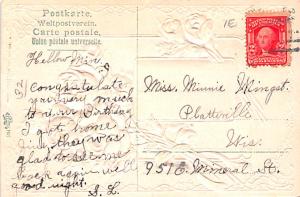 Postkarte
Weltpostverein.
Carte postale.
Union postale universelle.
1E
Hellow Min.
I congratulate
you very much
to your birthday
I got home
fine, they was
glad to see me
back again well
good night.
S. L.
Miss. Minnie Wingat.
Platteville
Wis.
951 E. Mineral St.